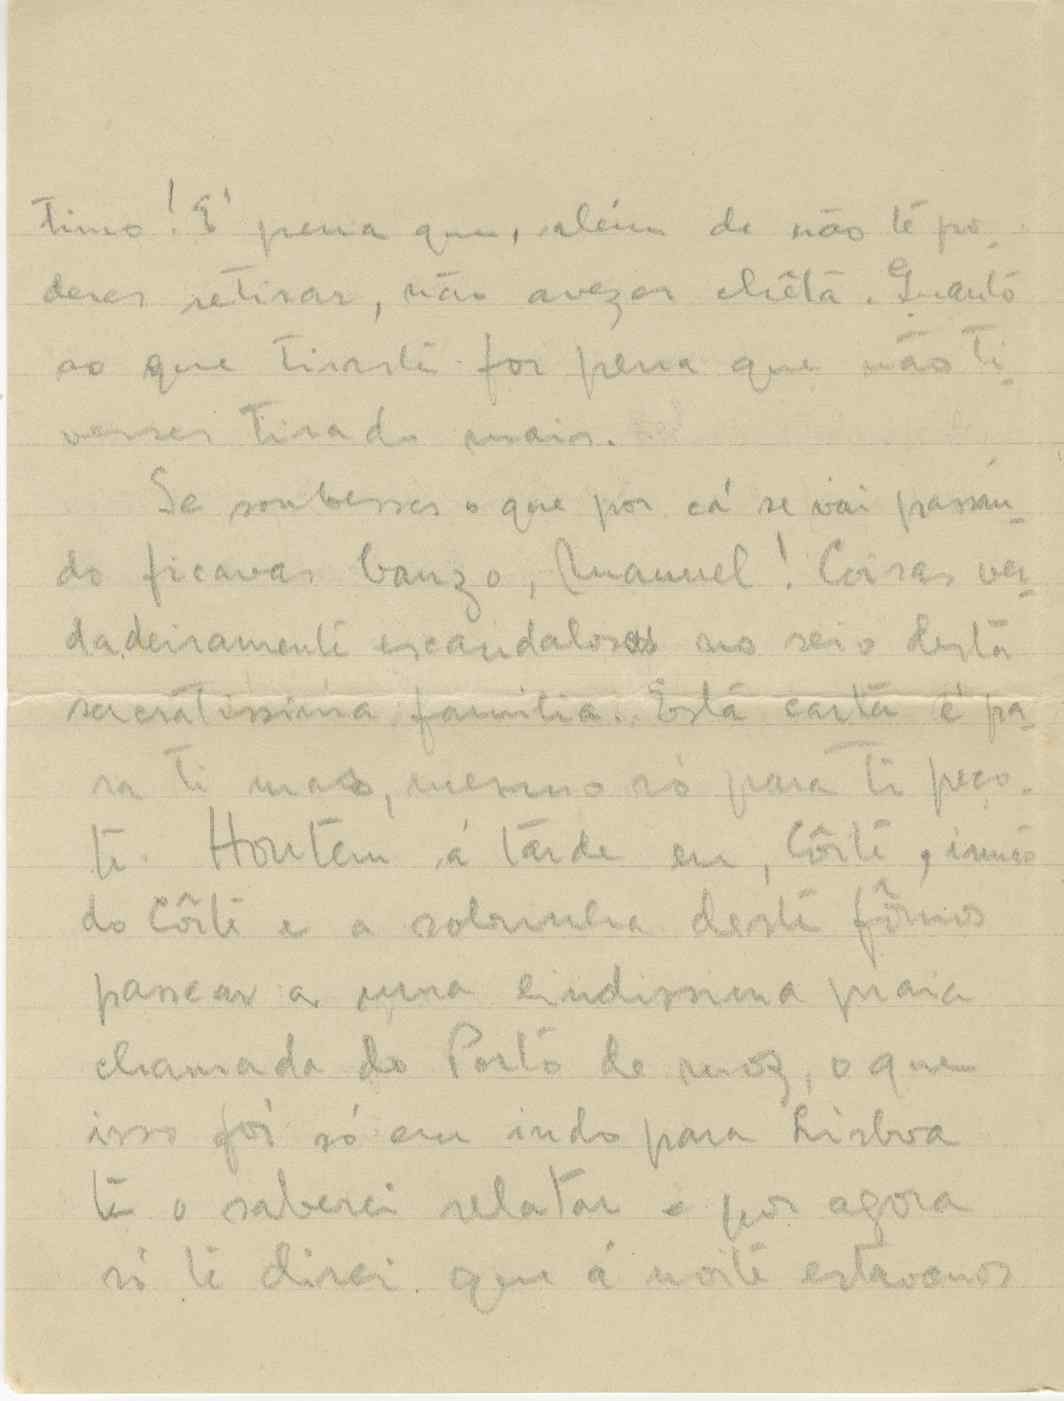 timo! E' pena que, além de não te po-
deres retirar, não avezar chêta. Quanto
ao que tiraste foi pena que não ti-
vesses tirado mais.
Se soubesses o que por cá se vai passan-
do ficavas banzo, Manuel! Coisas ver-
dadeiramente escandalosas no seio desta
sacratissima familia. Esta carta é pa-
ra ti mas, mesmo só para ti peço-
te. Hontem á tarde eu, Côrte, irmão
do Côrte e a sobrinha deste fômos
passear a uma lindissima praia
chamada do Porto de moz, o que
isso foi só eu indo para Lisboa
te o saberei relatar e por agora
só te direi que á noite estavamos